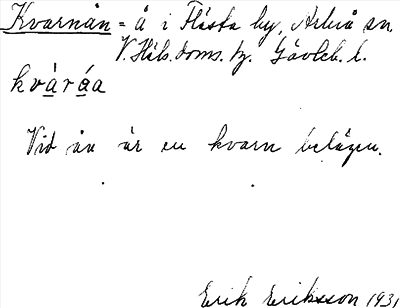 Kvarnån = å i Flästa by, Arbrå sn.
V. Häls. doms. tg. Gävleb. l.
kvàráa
Vid ån är en kvarn belägen.
Erik Eriksson 1931